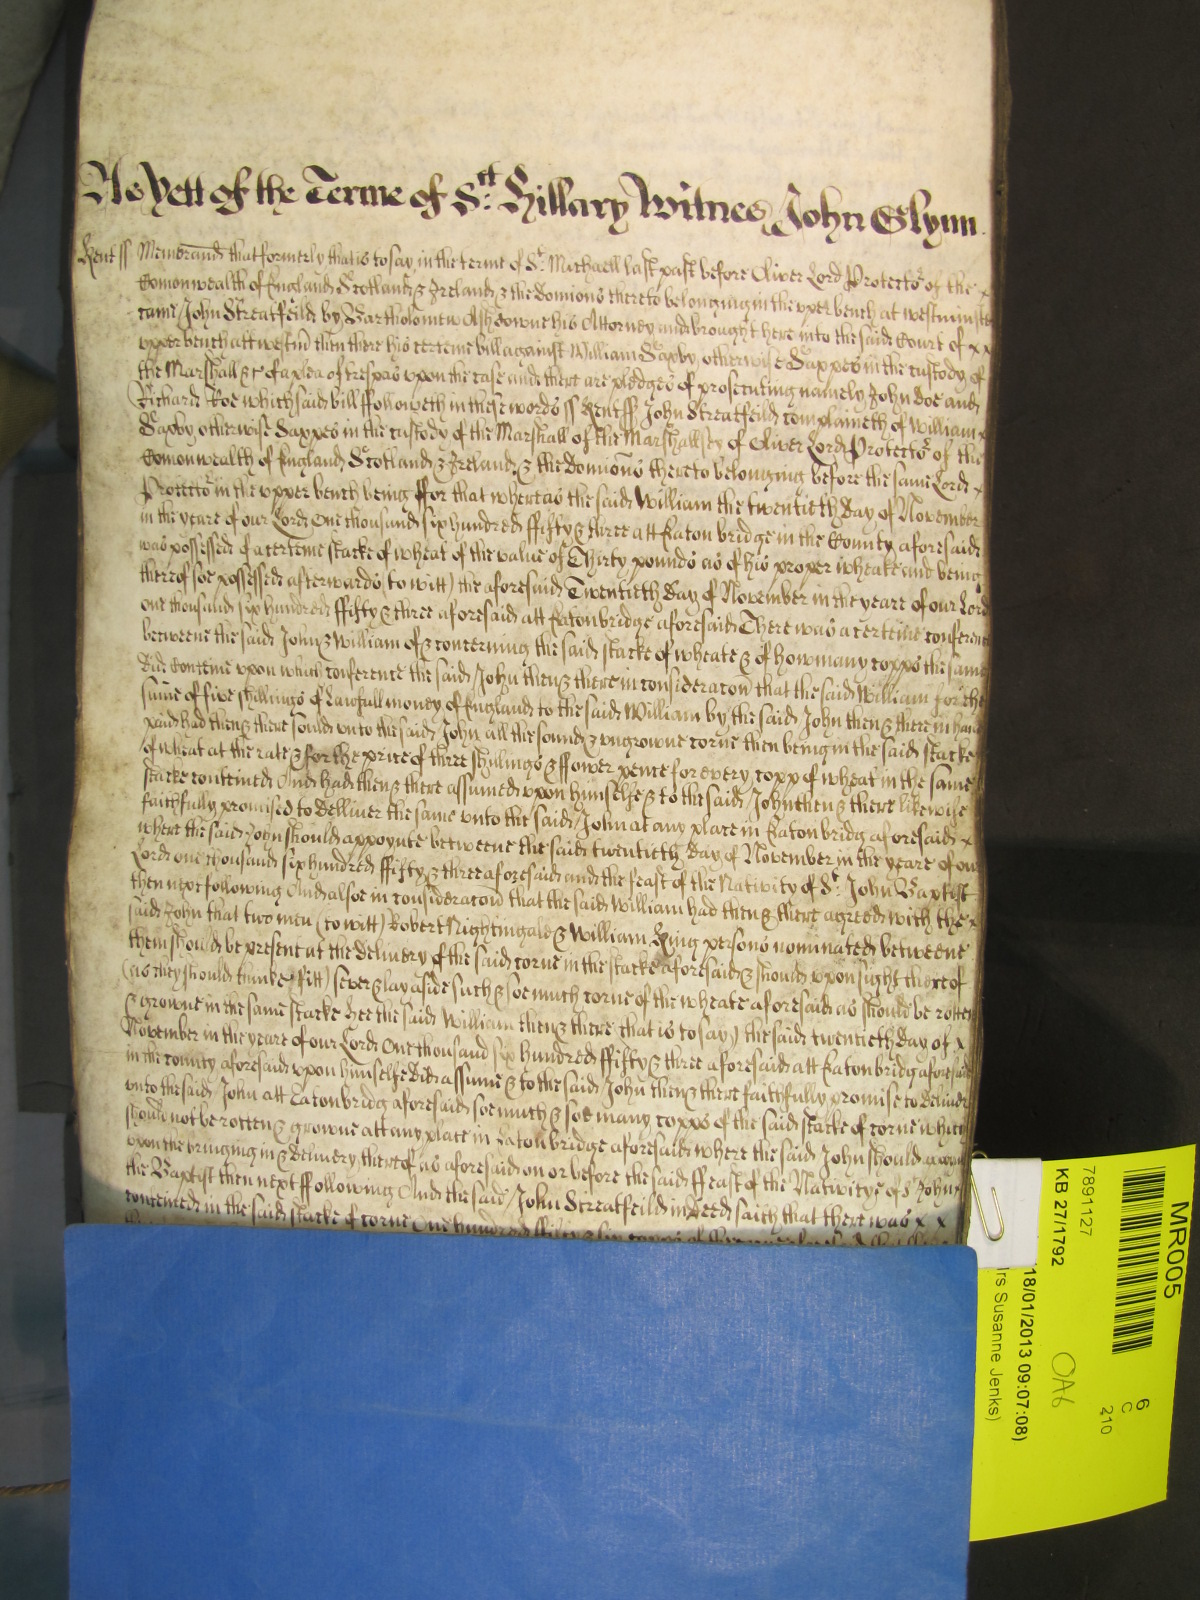 As Yett of the Terme of St. Hillary Witnes John Glynn.
Kent ss Memorand that formerly that is to say in the terme of St. Michaell last past before Oliver Lord Protector of the x
Comonwealth of England Scotland & Ireland & the domions thereto belonging in the upper bench at westminster
came John Streatfeild by Bartholomew Ashdowne his Attorney and brought here into the said Court of x x
upper bench att westm then there his certeine bill against William Saxby otherwise Saxpes in the custody of
the Marshall &c of a plea of trespas upon the case and there are pledges of prosecuting namely John Doe and
Richard Roe which said bill ffolloweth in these words ss Kent ss John Streatfeild complaineth of William x
Saxby otherwise Saxpes in the custody of the Marshall of the Marshallsey of Oliver Lord Protector of the
Comonwealth of England Scotland & Ireland & the domions thereto belonging before the same Lord x
Protector in the upper bench being ffor that whereas the said William the twentieth day of November
in the yeare of our Lord One thousand six hundred ffifty & three att Eaton bridge in the County aforesaid
was possessed of a certeine stacke of wheat of the value of Thirty pounds as of his proper wheate and being
thereof soe possessed afterwards (to witt) the aforesaid Twentieth day of November in the yeare of our Lord
one thousand six hundred ffifty & three aforesaid att Eatonbridge aforesaid There was a certeine conferenc
betweene the said John & William of & concerning the said stacke of wheate & of how many copps the same
did conteine upon which conference the said John then & there in consideracon that the said William for the
same of five shillings of Lawfull money of England to the said William by the said John then & there in hand
paid had then & there sould unto the said John all the sound & ungrowne corne then being in the said stacke
of wheat at the rate & for the price of three shillings & ffower pence for every copp of wheat in the same
stacke conteined And had then & there assumed upon himselfe & to the said John then & there likewise
faithfully promised to delliver the same unto the said John at any place in Eaton bridg aforesaid x
where the said John should appoynte betweene the said twentieth day of November in the yeare of our
Lord one thousand six hundred ffifty & three aforesaid and the feast of the Nativity of St. John Baptist
then next following And alsoe in consideracon that the said William had then & there agreed with the x
said John that two men (to witt) Robert Nightingale & William King persons nominated betweene
them should be present at the delivery of the said corne in the stacke aforesaid & should upon sight thereof
(as they should thinke ffitt) sever & lay aside such & soe much corne of the wheate aforesaid as should be rotten
& growne in the same stacke hee the said William then & there that is to say) the said twentieth day of x
November in the yeare of our Lord One thousand six hundred ffifty & three aforesaid att Eatonbridg aforesaid
in the county aforesaid upon himselfe did assume & to the said John then & there faithfully promise to deliver
unto the said John att Eatonbridg aforesaid soe much & soe many copps of the said stacke of corne which
should not be rotten & growne att any place in Eatonbridge aforesaid where the said John should appoynt
upon the bringing in & delivery thereof as aforesaid on or before the said ffeast of the Nativitye of St John
the Baptist then next ffollowing And the said John Streatfeild in deed saith that there was x x
conteined in the said stacke of corne One hundred ffifty & six copps of
MR005
6
C
210
7891127
KB 27/1792
OA6
18/01/2013 09:07:08)
rs Susanne Jenks)